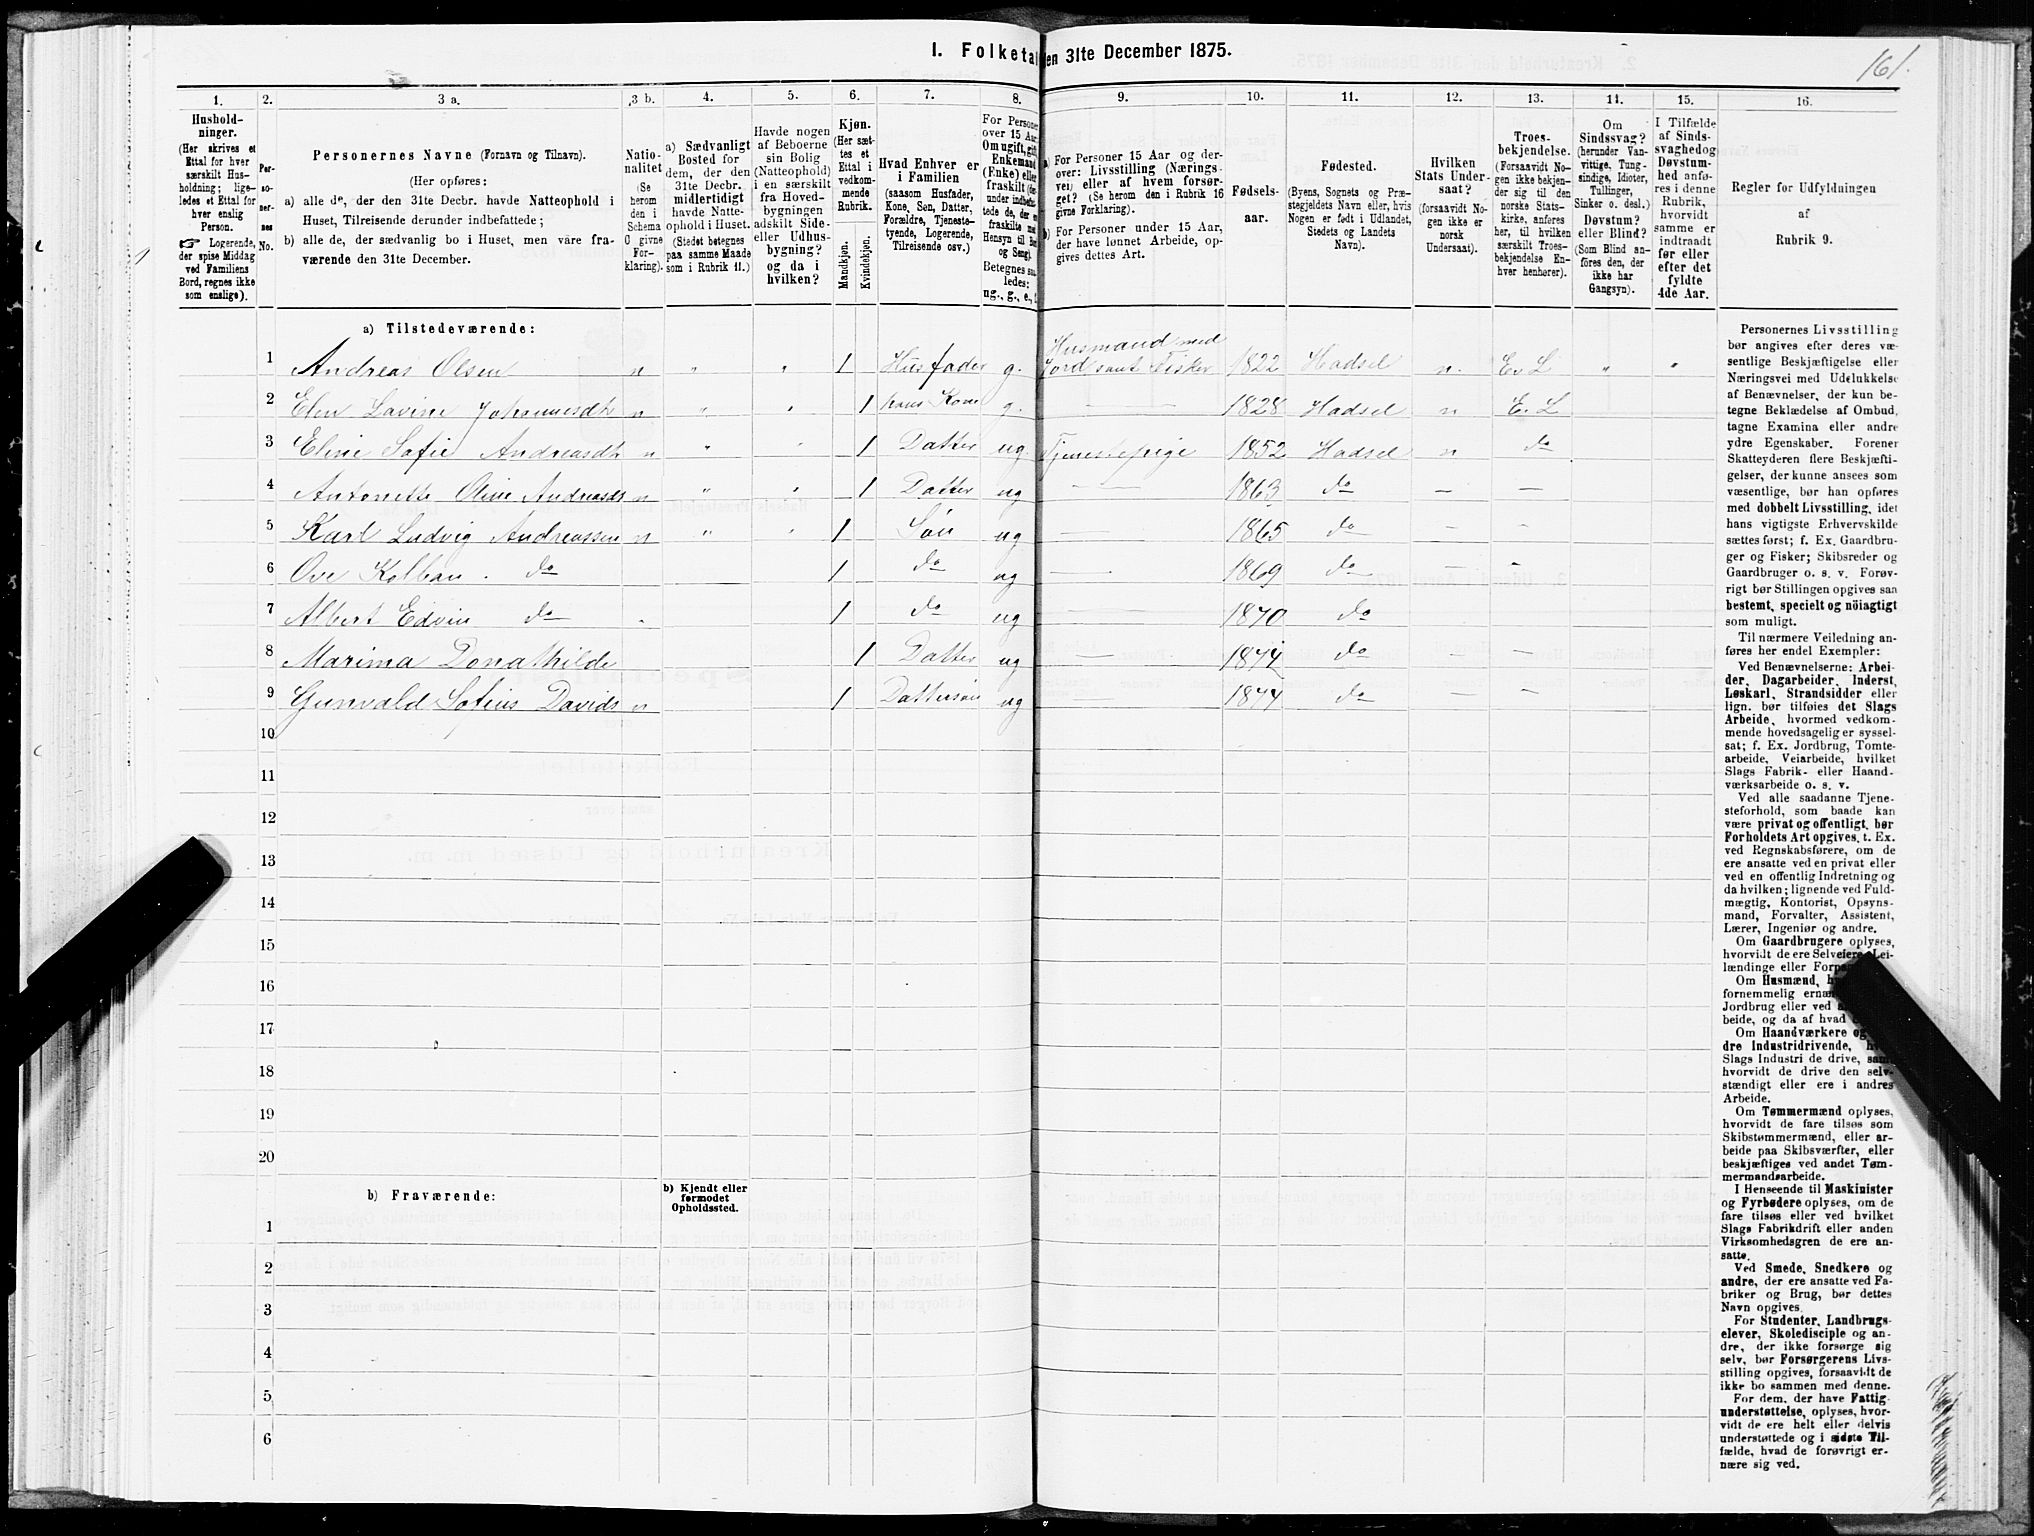 161.
I. Folketal den 31te December 1875.
1. 2. 3 a. 3 b. 4. 5. 6. 7. 8. 9. 10. 11. 12. 13. 14. 15. 16.
Hushold-
ninger.
(Her skrives et
Ettal for hver
særskilt Hus-
holdning; lige-
ledes et Ettal for
hver enslig
Person.
☞ Logerende,
der spise Middag
ved Familiens
Bord, regnes ikke
som enslige).
Per-
so-
ner-
nes
No.
Personernes Navne (Fornavn og Tilnavn).
(Her opføres:
a) alle de, der den 31te Decbr. havde Natteophold i
Huset, Tilreisende derunder indbefattede;
b) alle de, der sædvanlig bo i Huset, men våre fra-
værende den 31te December.
Natio-
nalitet
(Se
herom
den i
Schema
O givne
For-
klaring).
a) Sædvanligt
Bosted for
dem, der den
31te Decbr.
midlertidigt
havde Natte-
ophold i Huset.
(Stedet betegnes
paa samme Maade
som i Rubrik 11.)
Havde nogen
af Beboerne
sin Bolig
(Natteophold)
i en særskilt
fra Hoved-
bygningen
adskilt Side-
eller Udhus-
bygning?
og da i
hvilken?
Kjøn.
(Her sæt-
tes et
Ettal i
vedkom-
mende
Rubrik.
Mandkjøn.
Kvindekjøn.
Hvad Enhver er
i Familien
(saasom Husfader,
Kone, Søn, Datter,
Forældre, Tjeneste-
tyende, Logerende,
Tilreisende osv.)
For Personer
over 15 Aar
Om ugift, gift,
Enkemand
(Enke) eller
fraskilt
Betegnes saa-
ledes:
ug., g., e.,
a) For Personer 15 Aar og der-
over: Livsstilling (Nærings-
vei) eller af hvem forsør-
get? (Se herom den i Rubrik 16
givne Forklaring).
b) For Personer under 15 Aar,
der have lønnet Arbeide, op-
gives dettes Art.
Fødsels-
aar.
Fødested.
(Byens, Sognets og Præ-
stegjeldets Navn eller, hvis
Nogen er født i Udlandet,
Stedets og Landets
Navn).
Hvilken
Stats Under-
saat?
(forsaavidt No-
gen ikke er
norsk
Undersaat).
Troes-
bekjendelse.
(Forsaavidt No-
gen ikke bekjen-
der sig til den
norske Stats-
kirke, anføres
her, til hvilken
særskilt Troes-
bekjendelse En-
hver henhører).
Om
Sindssvag?
(herunder Van-
vittige, Tung-
sindige, Idioter,
Tullinger,
Sinker o. desl.)
Døvstum?
eller Blind?
(Som Blind an-
føres den, der
ikke har
Gangsyn).
I Tilfælde
af Sinds-
svaghed og
Døvstum-
hed anfø-
res i denne
Rubrik,
hvorvidt
samme er
indtraadt
før eller
efter det
fyldte
4de Aar.
Regler for Udfyldningen
af
Rubrik 9.
a) Tilstedeværende:
1 Andreas Olsen n " " 1 Husfader g. Husmand med
Jord samt Fisker 1822 Hadsel n. E. L " "
2 Elen Lavine Johannesdt n " " 1 hans Kone g. — 1828 Hadsel n E. L
3 Eline Sofie Andreasdt n " " 1 Datter ug. Tjenestepige 1852 Hadsel n do
4 Antonette Oline Andreasdt n " " 1 Datter ug — 1863 do — —
5 Karl Ludvig Andreassen n " " 1 Søn ug — 1865 do — —
6 Ove Kolban do 1 do ug — 1869 do — —
7 Albert Edvin do 1 do ug — 1870 do
8 Marima Donathilde 1 Datter ug — 1874 do
9 Gunvald Sofius Davids n 1 Dattersøn ug — 1874 do — —
10
11
12
13
14
15
16
17
18
19
20
b) Fraværende:
b) Kjendt eller
formodet
Opholdssted.
1
2
3
4
5
6
Personernes Livsstilling
bør angives efter deres væ-
sentlige Beskjæftigelse eller
Næringsvei med Udelukkelse
af Benævnelser, der kun be-
tegne Beklædelse af Ombud,
tagne Examina eller andre
ydre Egenskaber. Forener
Skatteyderen flere Beskjæfti-
gelser, der kunne ansees som
væsentlige, bør han opføres
med dobbelt Livsstilling, idet
hans vigtigste Erhvervskilde
sættes først; f. Ex. Gaardbru-
ger og Fisker; Skibsreder og
Gaardbruger o. s. v. Forøv-
rigt bør Stillingen opgives saa
bestemt, specielt og nöiagtigt
som muligt.
Til nærmere Veiledning an-
føres her endel Exempler:
Ved Benævnelserne: Arbei-
der, Dagarbeider, Inderst,
Løskarl, Strandsidder eller
lign. bør tilføies det Slags
Arbeide, hvormed vedkom-
mende hovedsagelig er syssel-
sat; f. Ex. Jordbrug, Tomte-
arbeide, Veiarbeide, hvilket
Slags Fabrik- eller Haand-
værksarbeide o. s. v.
Ved alle saadanne Tjene-
steforhold, som baade kan
være privat og offentligt, bør
Forholdets Art opgives, t. Ex.
ved Regnskabsførere, om de
ere ansatte ved en privat eller
ved en offentlig Indretning og
da hvilken; lignende ved Fuld-
mægtig, Kontorist, Opsyns-
mand, Forvalter, Assistent,
Lærer, Ingeniør og andre.
Om Gaardbrugere oplyses,
hvorvidt de ere Selveiere, Lei-
lændinge eller
Om Husmænd,
fornemmelig
Jordbrug eller ved
beide, og da af hvad
Om Haandværkere og
dre Industridrivende,
Slags Industri de drive, samt
hvorvidt de drive den selv-
stændigt eller ere i andres
Arbeide.
Om Tømmermænd oplyses,
hvorvidt de fare tilsøs som
Skibstømmermænd, eller ar-
beide paa Skibsværfter, eller
beskjæftiges ved andet Tøm-
mermandsarbeide.
I Henseende til Maskinister
og Fyrbødere oplyses, om de
fare tilsøs eller ved hvilket
Slags Fabrikdrift eller anden
Virksomhedsgren de ere an-
satte.
Ved Smede, Snedkere og
andre, der ere ansatte ved Fa-
briker og Brug, bør dettes
Navn opgives.
For Studenter, Landbrugs-
elever, Skoledisciple og an-
dre, der ikke forsørge sig
selv, bør Forsørgerens Livs-
stilling opgives, forsaavidt de
ikke bo sammen med denne.
For dem, der have Fattig-
understøttelse, oplyses, hvor-
vidt de ere helt eller delvis
understøttede og i sidste Til-
fælde, hvad de forøvrigt er-
nære sig ved.